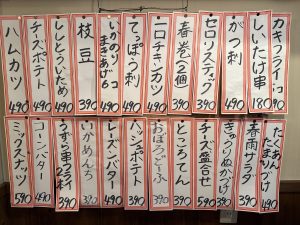 カキフライ
しいたけ串 180
がつ刺 490
セロリスティック 390
春巻 390
一口チキンカツ 490
てっぽう刺 490
いかのり
まきあげ 490
枝豆 390
ししとういため 490
チーズポテト 490
ハムカツ 490
たくあん
春雨サラダ 390
きゅうりぬかづけ
チーズ盛合せ 590
ところてん 390
おぼろどーふ 390
ハッシュポテト 390
レーズンバター 490
いかめんち 390
うずら串フライ 390
コーンバター 490
ミックスナッツ 590